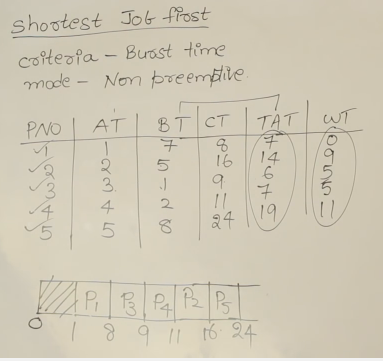 Shortest Job first
criteria - Burst time
mode - Non preemptive.
PNO AT BT CT TAT WT
1 1 7 8 7 0
2 2 5 16 14 9
3 3. 1 9. 6 5
4 4 2 11 7 5
5 5 8 24 19 11
P1 P3 P4 P2 P5
0 1 8 9 11 16 24